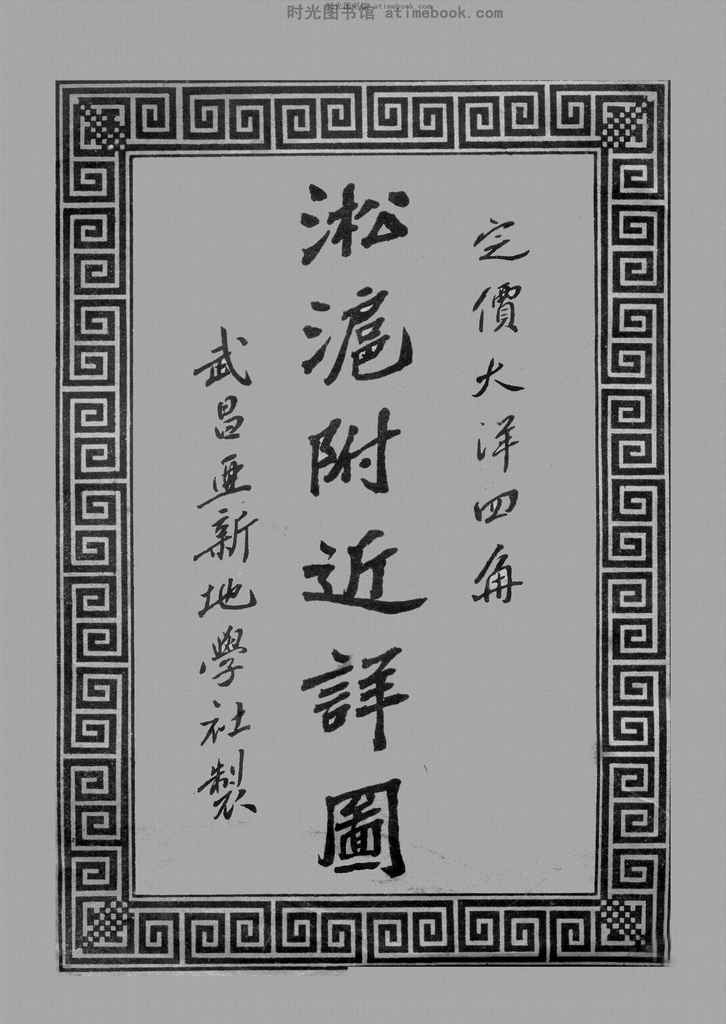 时光图书馆 atimebook.com
定價大洋四角
淞滬附近詳圖
武昌亜新地學社製